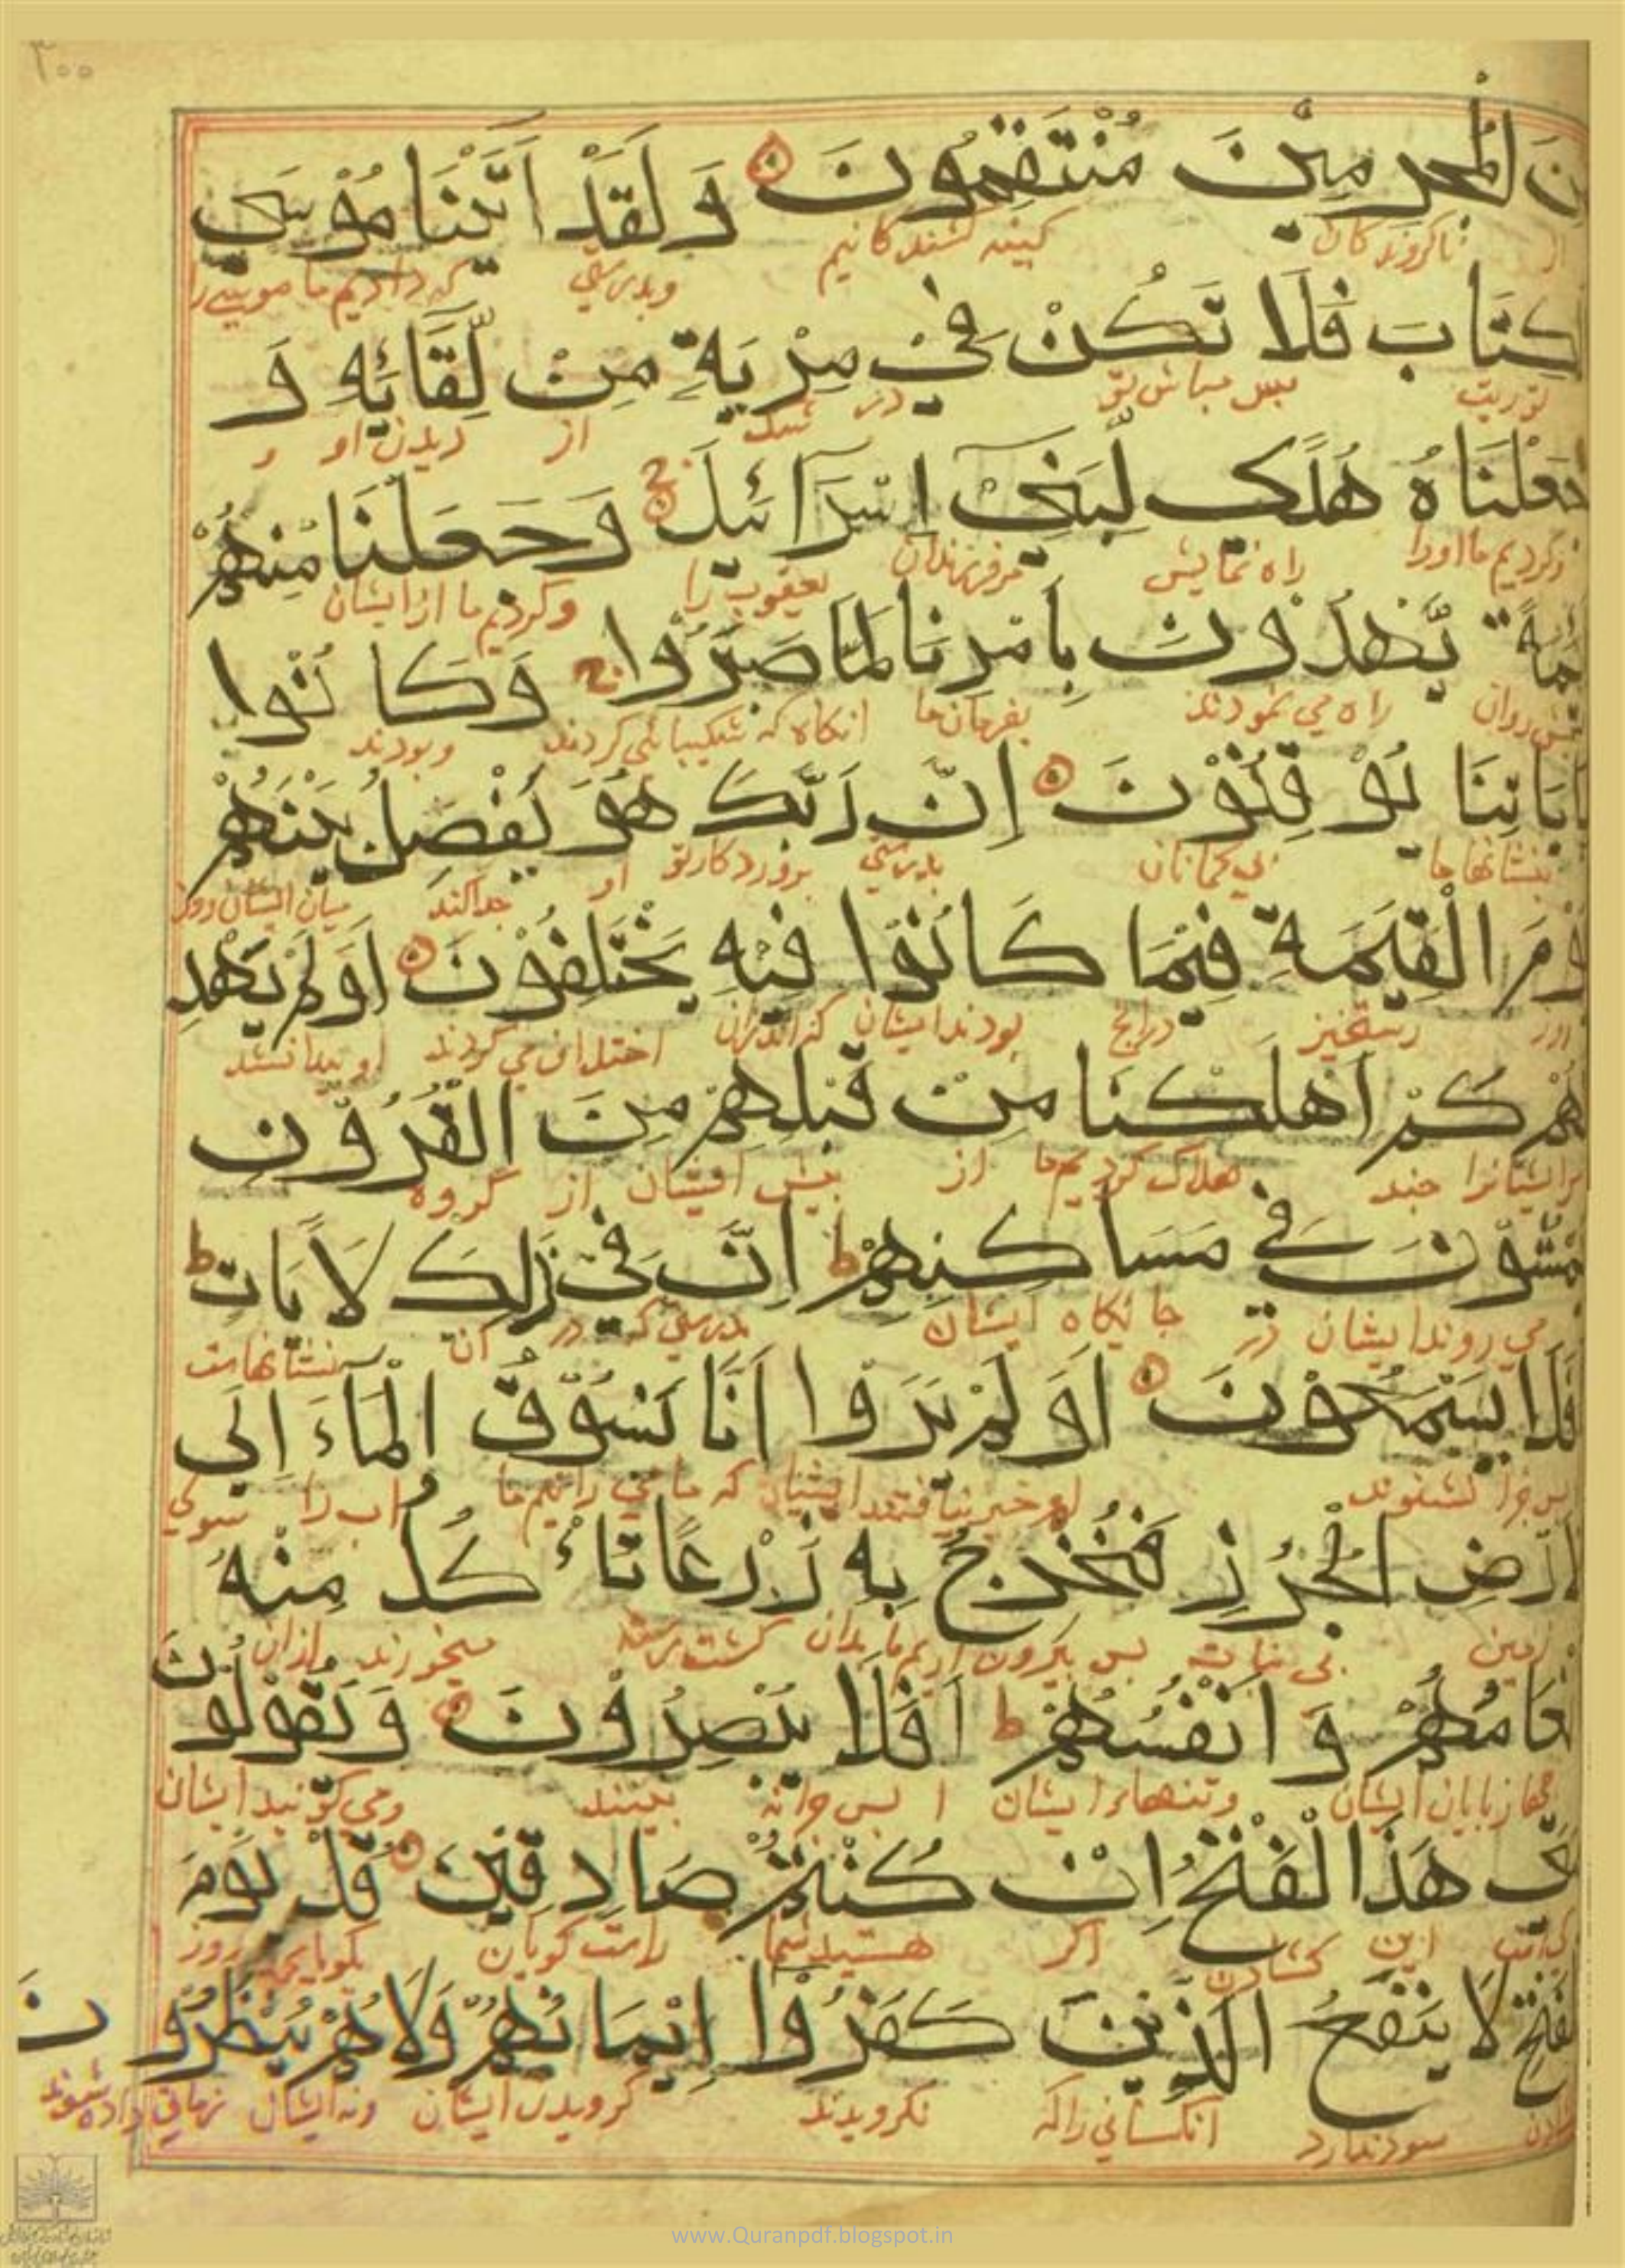 ٣٠٠
نَ الْمُجْرِمِيْنَ مُنْتَقِمُونَ وَلَقَدْ اٰتَيْنَا مُوْسَى
نا کروندکان کینه کشندکانیم وبدرستی که دادیم ما موسی را
كِتَابَ فَلَا تَكُنْ فِيْ مِرْيَةٍ مِنْ لِّقَائِهِ وَ
توریت پس مباش تو در شک از دیدن او و
جَعَلْنَاهُ هُدًى لِّبَنِيْ اِسْرَائِيلَ وَجَعَلْنَا مِنْهُمْ
وکردیم ما اورا راه نمایش مر فرزندان یعقوب را وکردیم ما از ایشان
ئِمَّةً يَّهْدُوْنَ بِاَمْرِنَا لَمَّا صَبَرُوْا وَكَانُوْا
راه می نمودند بفرمان ما انکاه که شکیبائی کردند وبودند
بِاٰيَاتِنَا يُوْقِنُوْنَ اِنَّ رَبَّكَ هُوَ يَفْصِلُ بَيْنَهُمْ
بنشانها ما بی کمانان بدرستی پروردکار تو او جدا کند میان ایشان روز
وْمَ الْقِيٰمَةِ فِيْمَا كَانُوْا فِيْهِ يَخْتَلِفُوْنَ اَوَلَمْ يَهْدِ
رستخیز درانچ بودند ایشان که اندران اختلاف می کردند
هُمْ كَمْ اَهْلَكْنَا مِنْ قَبْلِهِمْ مِنَ الْقُرُوْنِ
مرایشانرا چند هلاک کردیم ما از پیش ایشان از کروه
مْشُوْنَ فِيْ مَسَاكِنِهِمْ ط اِنَّ فِيْ ذٰلِكَ لَاٰيَاتٍ ط
می روند ایشان در جایکاه ایشان بدرستی که در آن نشانهاست
فَلَا يَسْمَعُوْنَ اَوَلَمْ يَرَوْا اَنَّا نَسُوْقُ الْمَاءَ اِلَى
پس چرا نشنوند خبر نیافتند ایشان که ما می رانیم ما اب را سوی
لْاَرْضِ الْجُرُزِ فَنُخْرِجُ بِهٖ زَرْعًا تَاْكُلُ مِنْهُ
زمین بی نبات پس بیرون اریم ما بدان کشت میخورند ازان
نْعَامُهُمْ وَ اَنْفُسُهُمْ ط اَفَلَا يُبْصِرُوْنَ وَيَقُوْلُوْنَ
چهارپایان ایشان وتنهاء ایشان ا پس چرا نه بینند ومی کویند ایشان
تٰى هٰذَا الْفَتْحُ اِنْ كُنْتُمْ صَادِقِيْنَ قُلْ يَوْمَ
این کشادن اکر هستید شما راست کویان بکو روز
لْفَتْحِ لَا يَنْفَعُ الَّذِيْنَ كَفَرُوْا اِيْمَانُهُمْ وَلَا هُمْ يُنْظَرُوْنَ
سود ندارد انکسانی راکه نکرویدند کرویدن ایشان ونه ایشان زمانی داده شوند
www.Quranpdf.blogspot.in